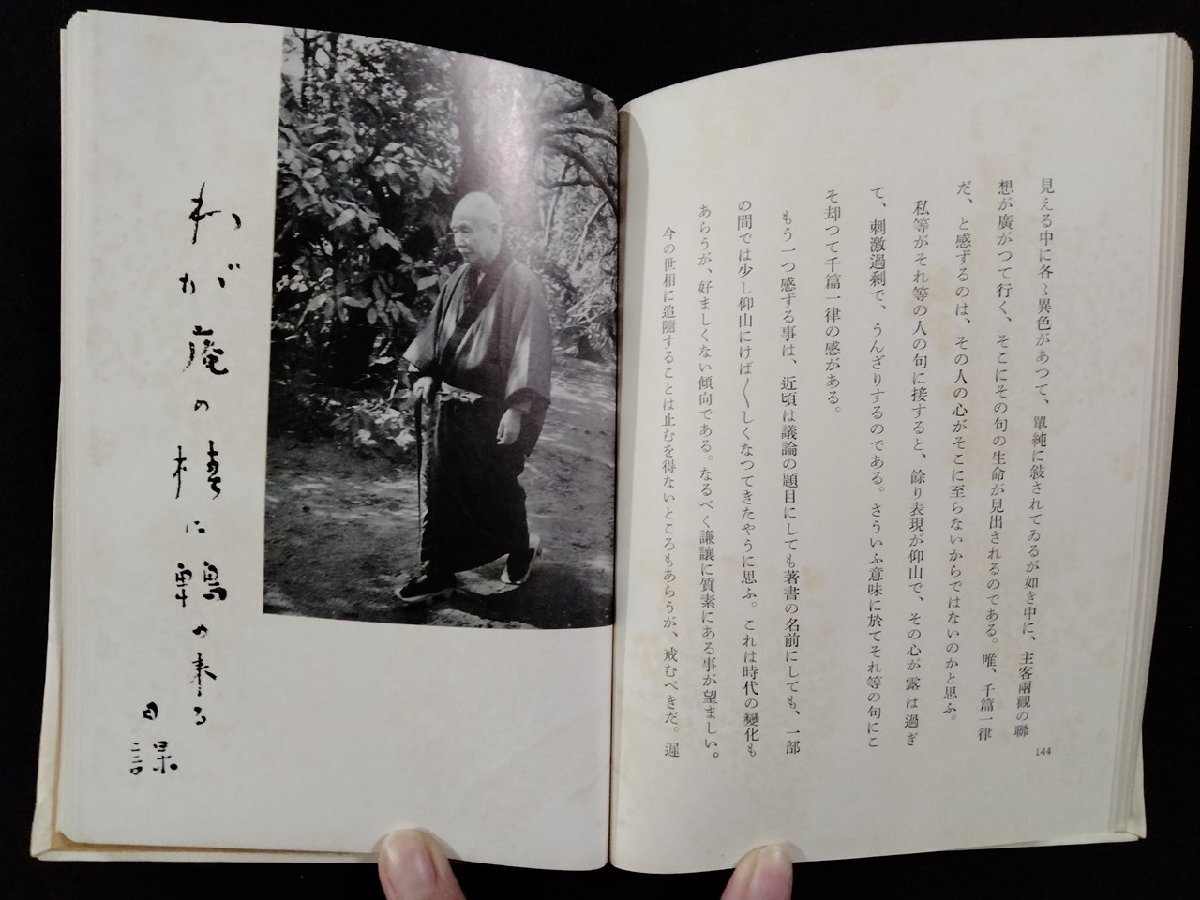 見える中に各〻異色があつて、單純に敍されてゐるが如き中に、主客兩觀の聯
想が廣がつて行く、そこにその句の生命が見出されるのである。唯、千篇一律
だ、と感ずるのは、その人の心がそこに至らないからではないのかと思ふ。
私等がそれ等の人の句に接すると、餘り表現が仰山で、その心が露は過ぎ
て、刺激過剩で、うんざりするのである。さういふ意味に於てそれ等の句にこ
そ却つて千篇一律の感がある。
もう一つ感ずる事は、近頃は議論の題目にしても著書の名前にしても、一部
の間では少し仰山にけば〱しくなつてきたやうに思ふ。これは時代の變化も
あらうが、好ましくない傾向である。なるべく謙讓に質素にある事が望ましい。
今の世相に追隨することは止むを得ないところもあらうが、戒むべきだ。遲
144
わが庵の
に鴨の来る
日課